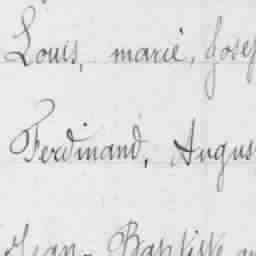 Louis, marie, Josep
Ferdinand, Augus
Jean-Baptiste